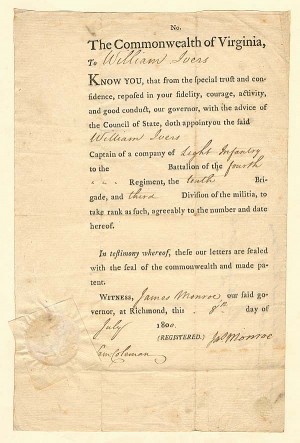 No.
The Commonwealth of Virginia,
To William Ivers
KNOW YOU, that from the special trust and con-
fidence, reposed in your fidelity, courage, activity,
and good conduct, our governor, with the advice of
the Council of State, doth appoint you the said
William Ivers
Captain of a company of Light Infantry
to the Battalion of the fourth
Regiment, the tenth Bri-
gade, and third Division of the militia, to
take rank as such, agreeably to the number and date
hereof.
In testimony whereof, these our letters are sealed
with the seal of the commonwealth and made pa-
tent.
WITNESS, James Monroe, our said go-
vernor, at Richmond, this 8th day of
July 1800.
(REGISTERED.) Jas Monroe
Sam Coleman